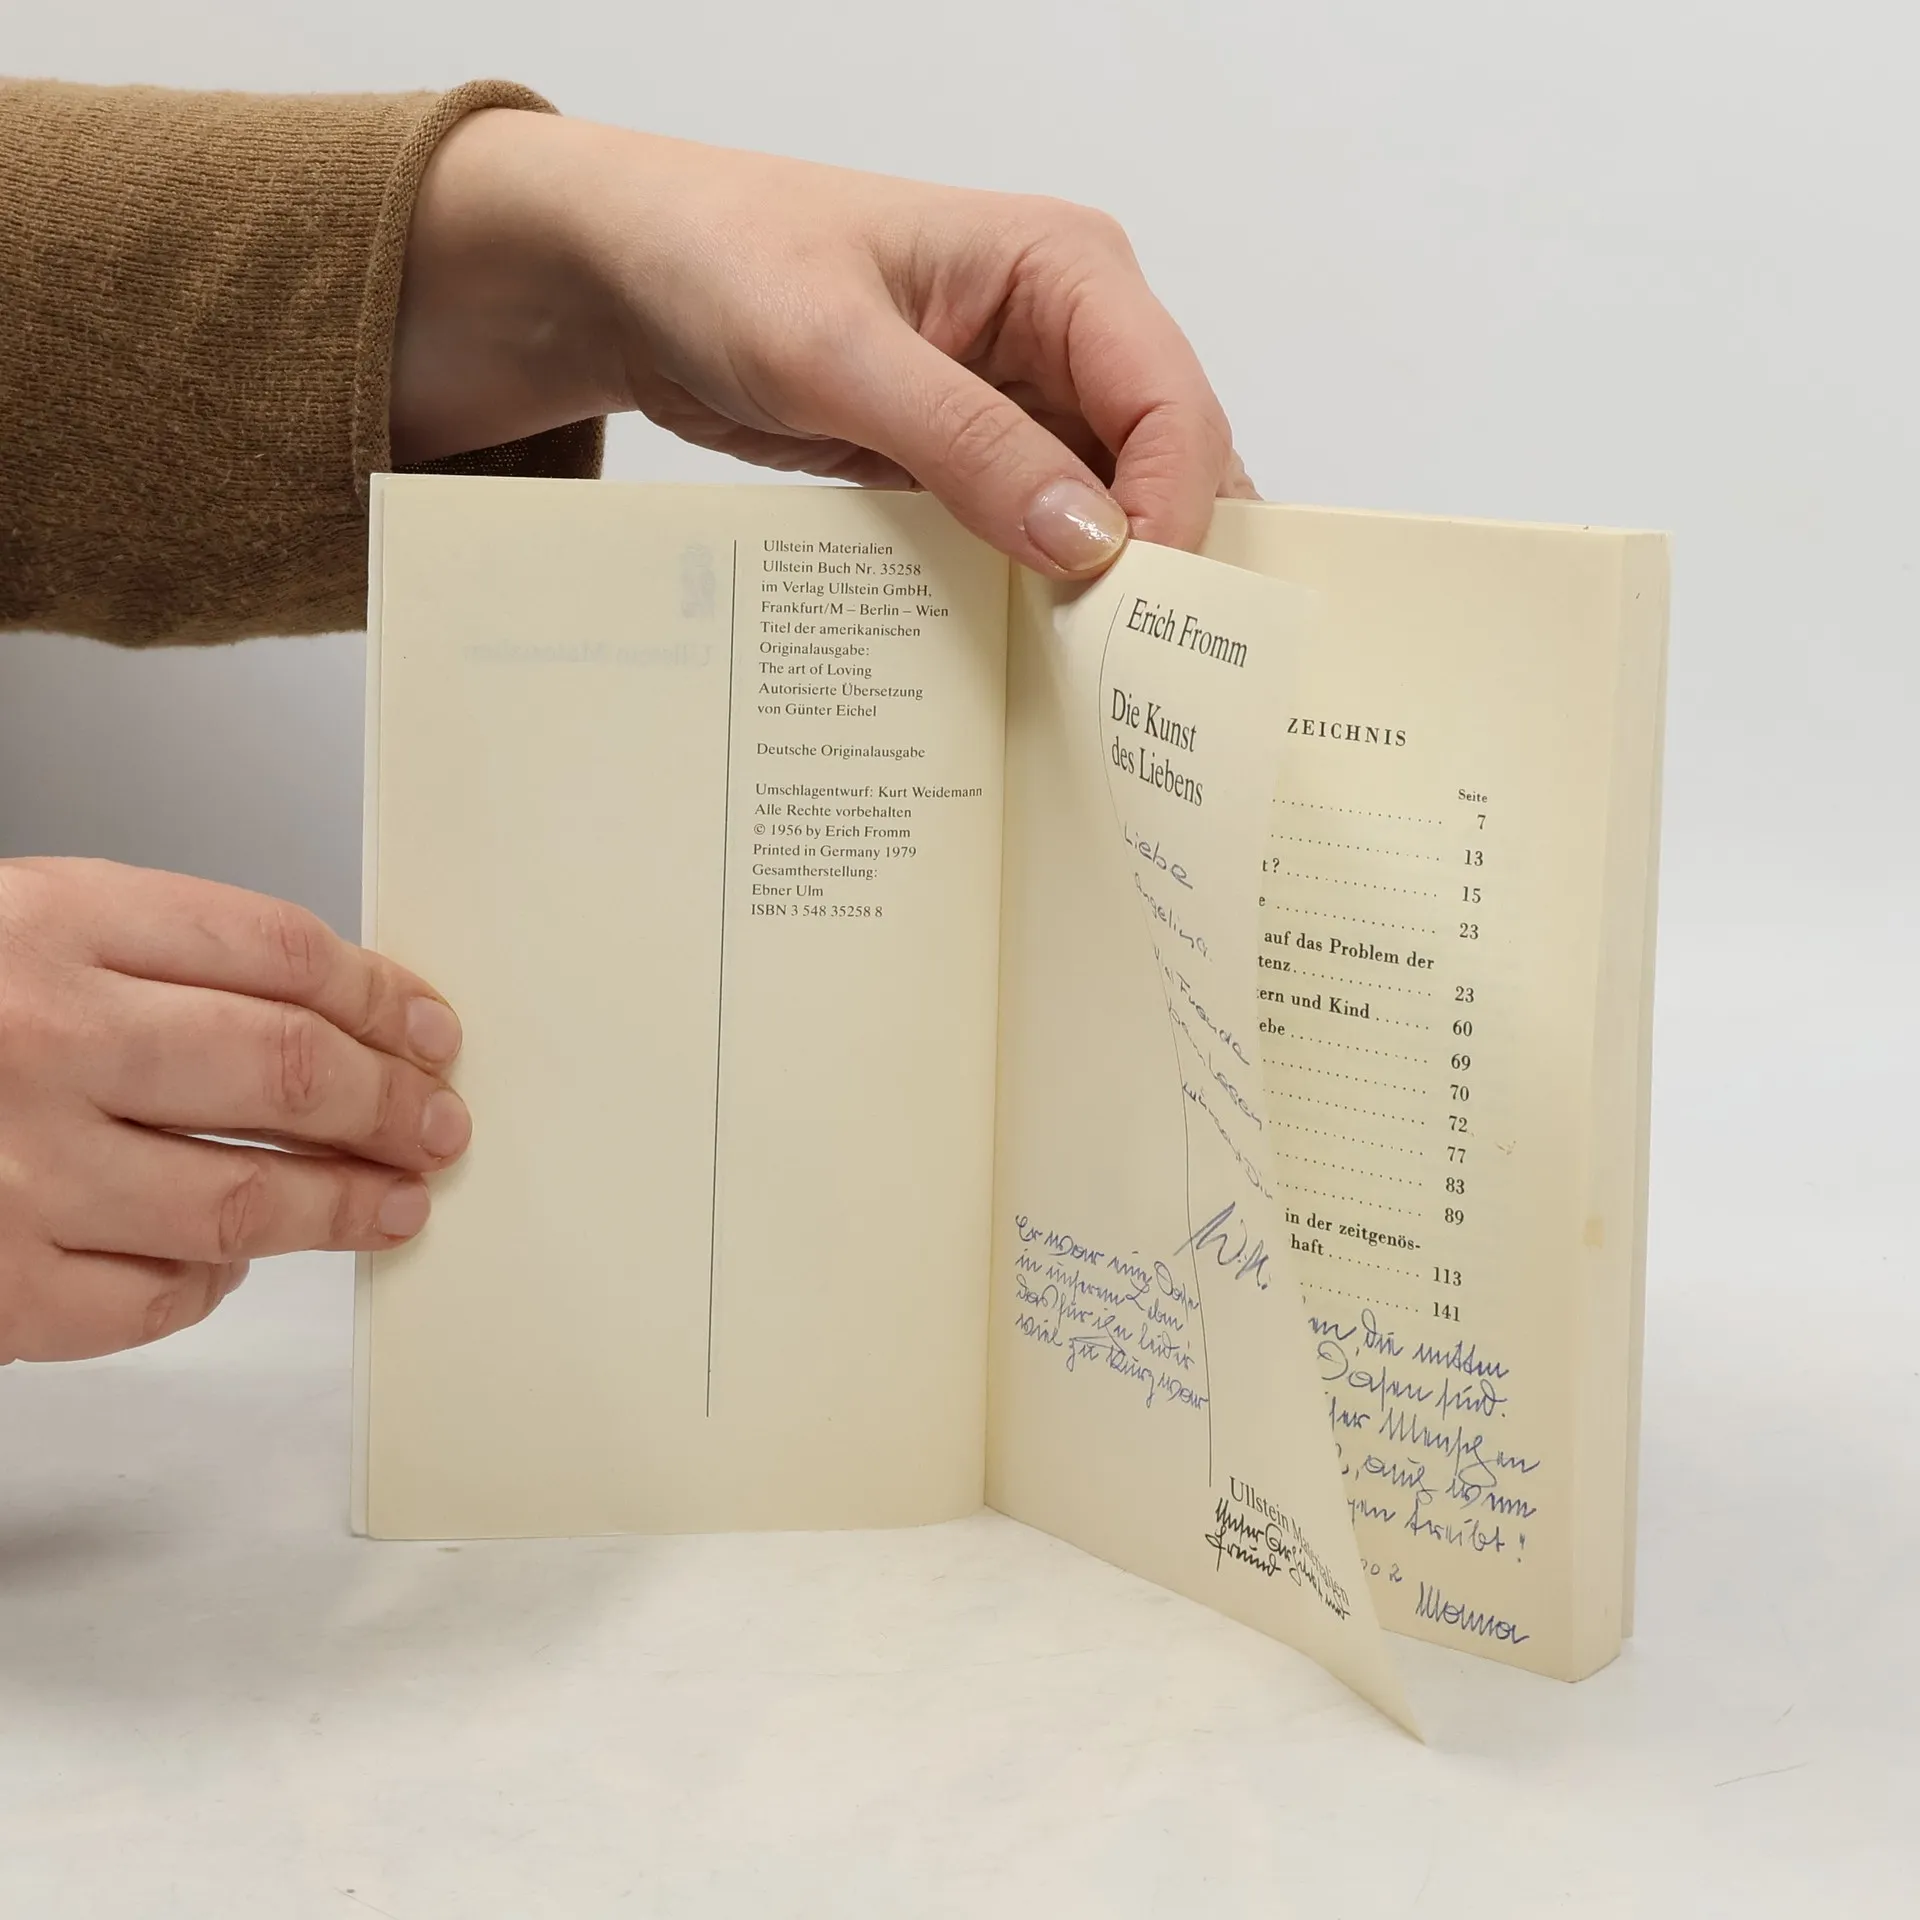 Ullstein Materialien
Ullstein Buch Nr. 35258
im Verlag Ullstein GmbH,
Frankfurt/M – Berlin – Wien
Titel der amerikanischen
Originalausgabe:
The art of Loving
Autorisierte Übersetzung
von Günter Eichel
Deutsche Originalausgabe
Umschlagentwurf: Kurt Weidemann
Alle Rechte vorbehalten
© 1956 by Erich Fromm
Printed in Germany 1979
Gesamtherstellung:
Ebner Ulm
ISBN 3 548 35258 8
Erich Fromm
Die Kunst
des Liebens
Liebe
Angelina
Freude
beim Lesen
Er war eine Oase
in unserem Leben
das für ihn leider
viel zu kurz war
Ullstein Materialien
Unser
Freund
ZEICHNIS
Seite
7
13
t? 15
e 23
auf das Problem der
tenz 23
tern und Kind 60
ebe 69
70
72
77
83
89
in der zeitgenös-
haft 113
141
en, die mitten
Oasen sind.
ser Menschen
, auch wenn
en treibt!
002